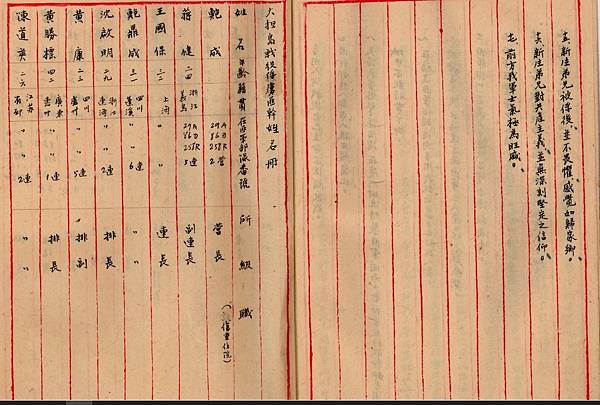 五、新生弟兄被俘後、並不畏懼、感覺如歸家鄉。
六、新生弟兄對共產主義、並無深刻堅定之信仰。
七、前方我軍士氣極為旺盛。
大担島戰役俘虜匪幹姓名冊
姓名 年齡 籍貫 所級職
鮑成 29A 86D 258R 2營 營長 (傷重住院)
蔣健 二四 浙江義烏 29A 86D 258R 5連 副連長
王國保 二二 上海 〃 〃 連長
鮑鼎成 三一 四川蓬溪 〃 6連 〃
沈啟明 二九 浙江 〃 2連 排長
黃康 二三 四川 〃 5連 〃排副
黃勝標 四二 廣東 〃 1連 排長
陳道英 二六 江蘇 〃 2連 〃 〃